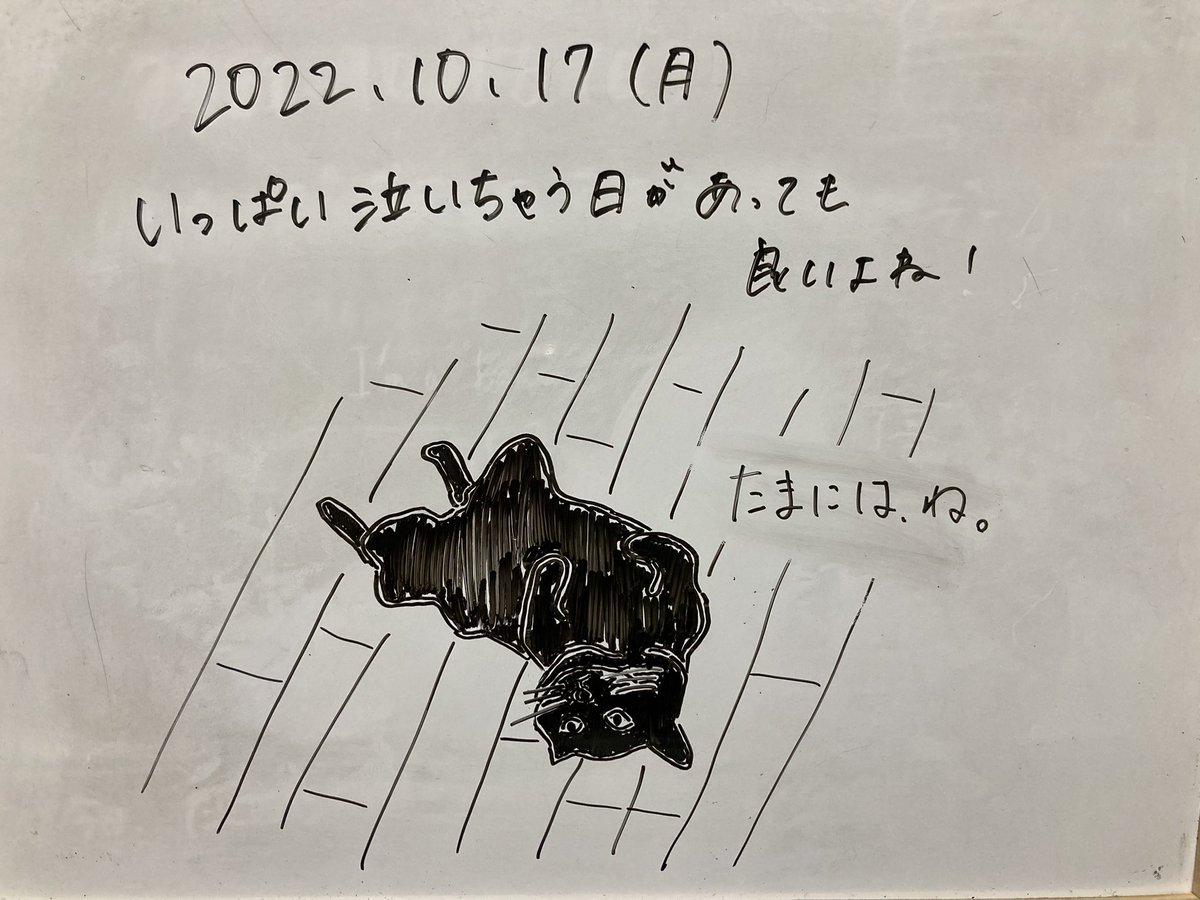 2022、10、17(月)
いっぱい泣いちゃう日があっても
良いよね!
たまには、ね。